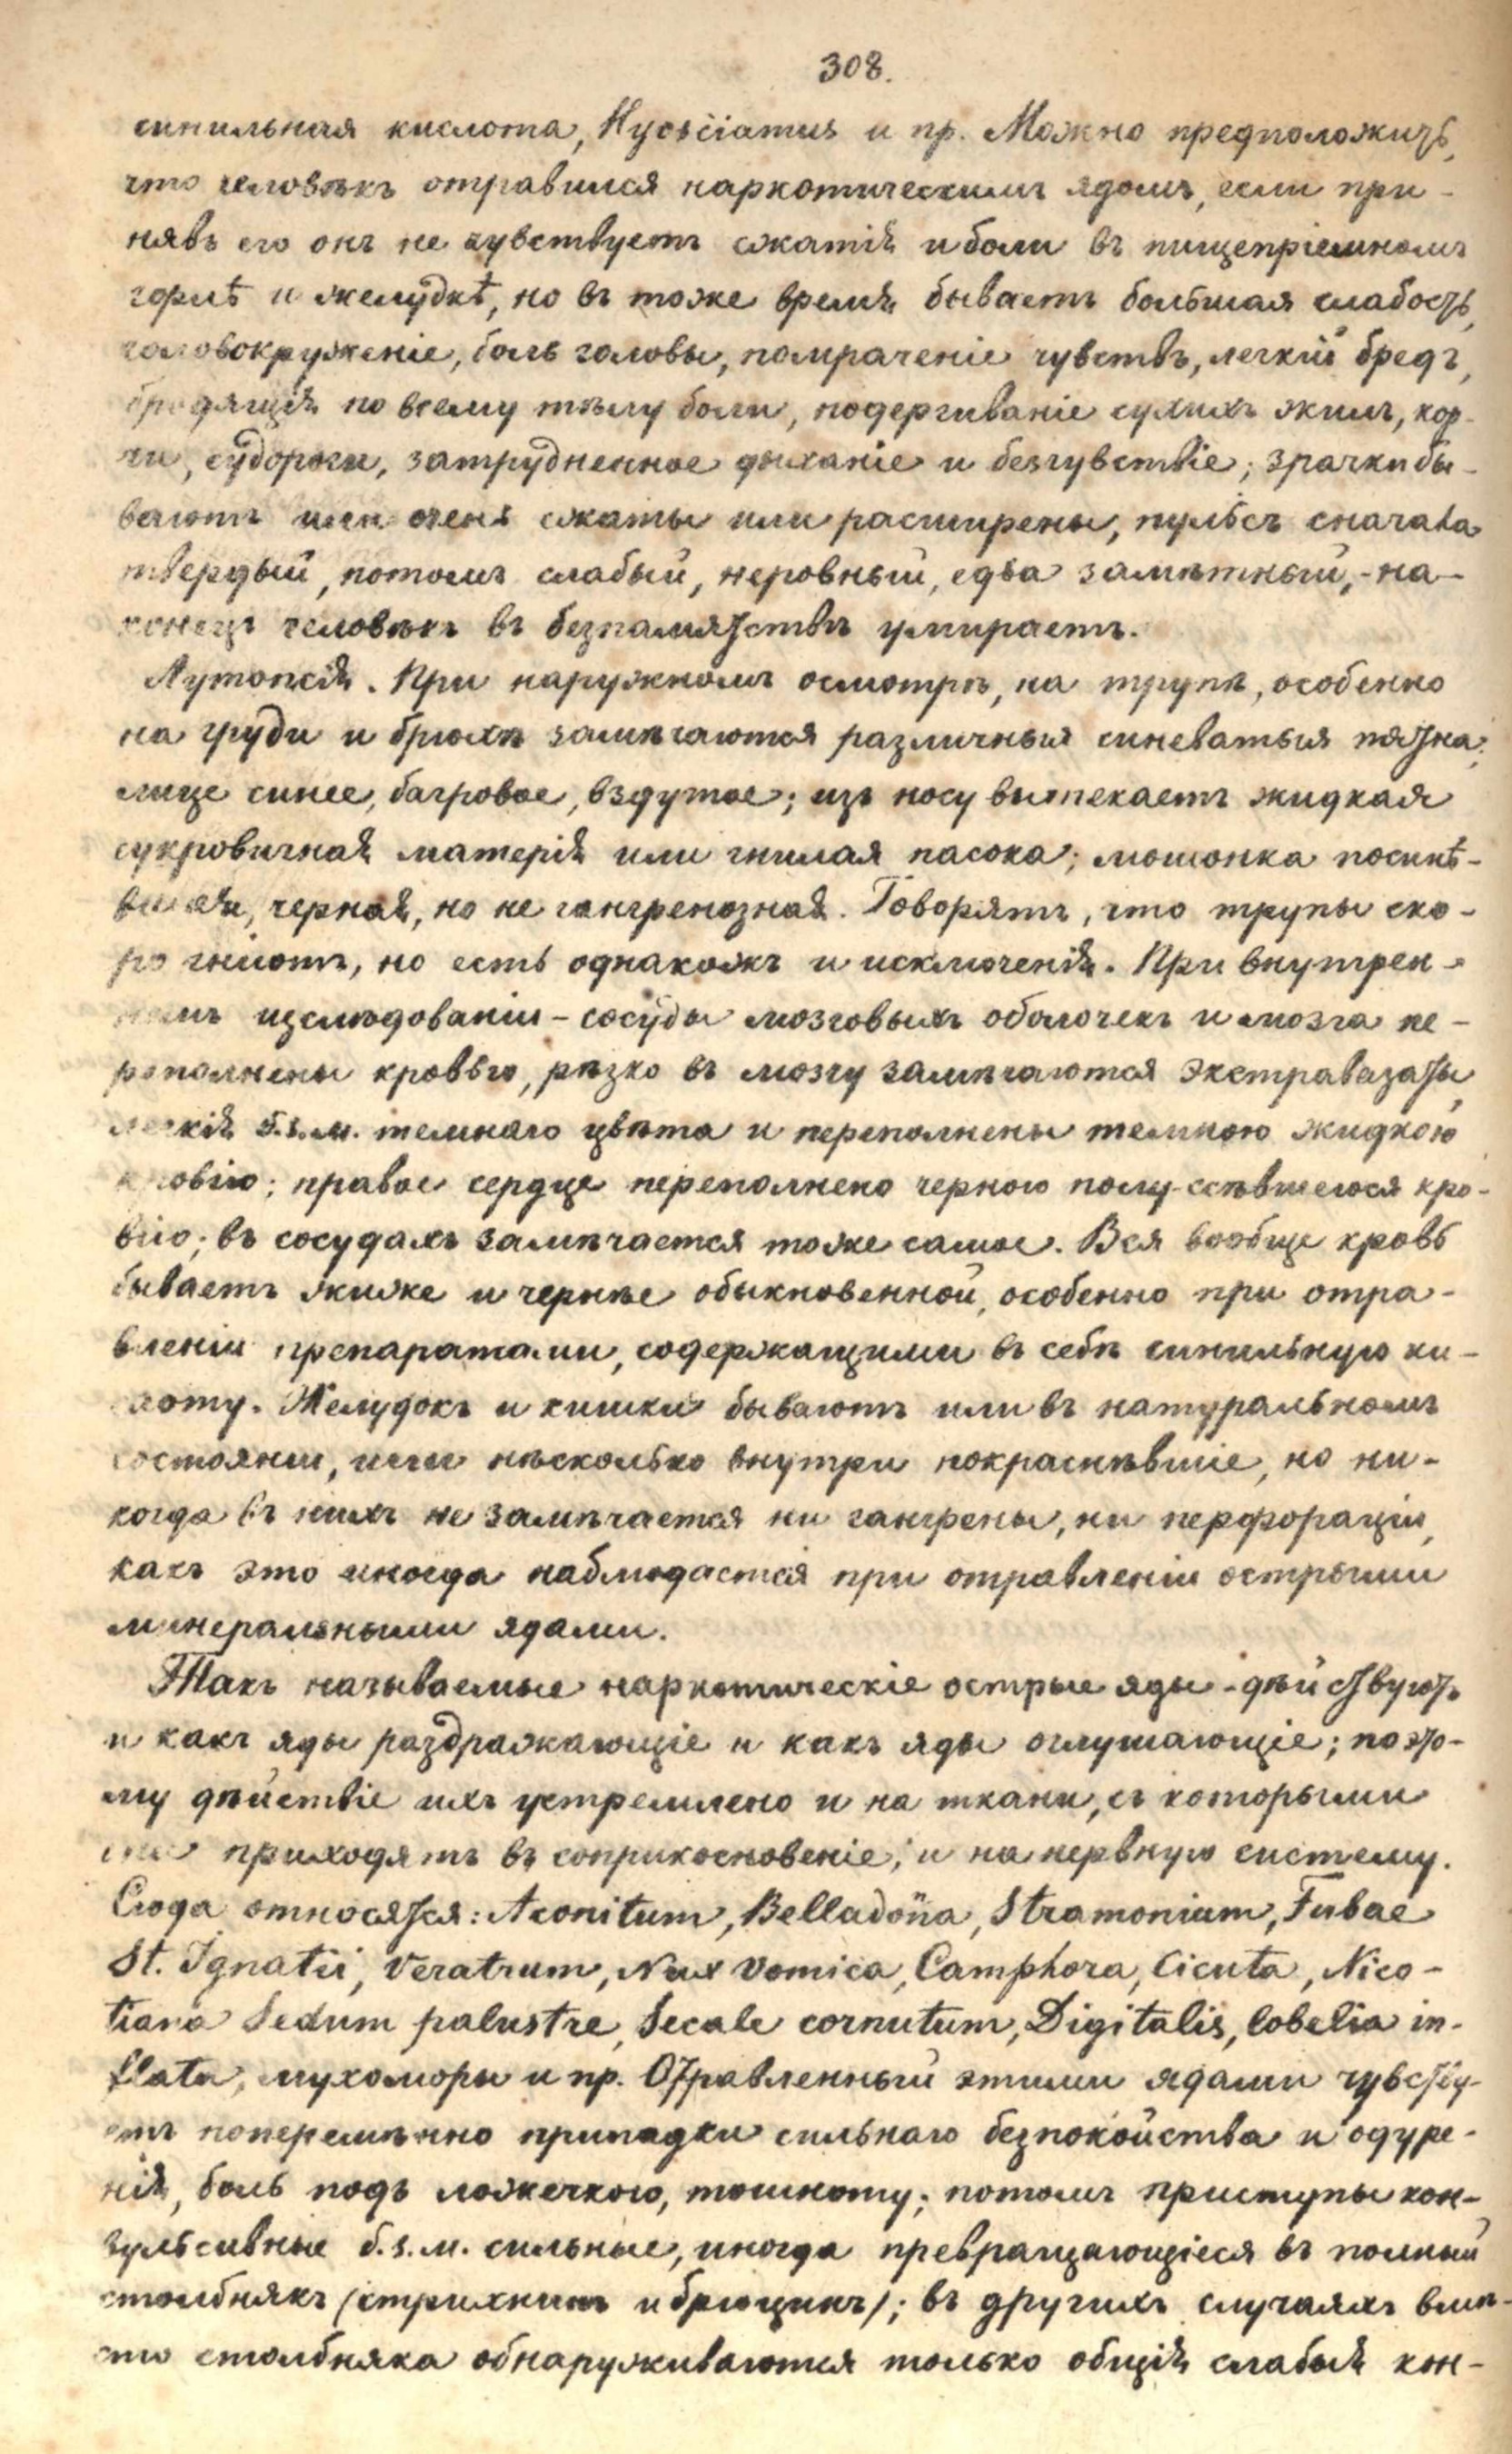 308.
синильная кислота, Hyosciamus и пр. Можно предположить,
что человѣкъ отравился наркотическимъ ядомъ, если при-
нявъ его онъ не чувствуетъ сжатія и боли въ пищепріемномъ
горлѣ и желудкѣ, но въ тоже время бываетъ большая слабость,
головокруженіе, боль головы, помраченіе чувствъ, легкій бредъ,
бродящія по всему тѣлу боли, подергиваніе сухихъ жилъ, кор-
чи, судороги, затрудненное дыханіе и безчувствіе; зрачки бы-
ваютъ или очень сжаты или расширены, пульсъ сначала
твердый, потомъ слабый, неровный, едва замѣтный, - на-
конецъ человѣкъ въ безпамятствѣ умираетъ.
Аутопсія. При наружномъ осмотрѣ, на трупѣ, особенно
на груди и брюхѣ замѣчаются различныя синеватыя пятна;
лице синее, багровое, вздутое; изъ носу вытекаетъ жидкая
сукровичная матерія или гнилая пасока; мошонка посинѣ-
вшая, черная, но не гангренозная. Говорятъ, что трупы ско-
ро гніютъ, но есть однакожъ и исключенія. При внутрен-
немъ изслѣдованіи - сосуды мозговыхъ оболочекъ и мозга пе-
реполнены кровью, рѣзко въ мозгу замѣчаются экстравазаты,
легкія б.з.м. темнаго цвѣта и переполнены темною жидкою
кровію; правое сердце переполнено черною полу-ссѣвшеюся кро-
вію; въ сосудахъ замѣчается тоже самое. Вся вообще кровь
бываетъ жиже и чернѣе обыкновенной, особенно при отра-
вленіи препаратами, содержащими въ себѣ синильную ки-
слоту. Желудокъ и кишки бываютъ или въ натуральномъ
состояніи, или нѣсколько внутри покраснѣвшіе, но ни-
когда въ нихъ не замѣчается ни гангрены, ни перфораціи,
какъ это иногда наблюдается при отравленіи острыми
минеральными ядами.
Такъ называемые наркотическіе острые яды - дѣйствуютъ
и какъ яды раздражающіе и какъ яды оглушающіе; поэто-
му дѣйствіе ихъ устремлено и на ткани, съ которыми
они приходятъ въ соприкосновеніе, и на нервную систему.
Сюда относятся: Aconitum, Belladona, Stramonium, Fabae
St. Ignatii, Veratrum, Nux vomica, Camphora, Cicuta, Nico-
tiana Sedum palustre, Secale cornutum, Digitalis, lobelia in-
flata, мухоморы и пр. Отравленный этими ядами чувству-
етъ поперемѣнно припадки сильнаго безпокойства и одуре-
нія, боль подъ ложечкою, тошноту; потомъ приступы кон-
вульсивные б.з.м. сильные, иногда превращающіеся въ полный
столбнякъ (стрихнинъ и бруцинъ); въ другихъ случаяхъ вмѣ-
сто столбняка обнаруживаются только общія слабыя кон-